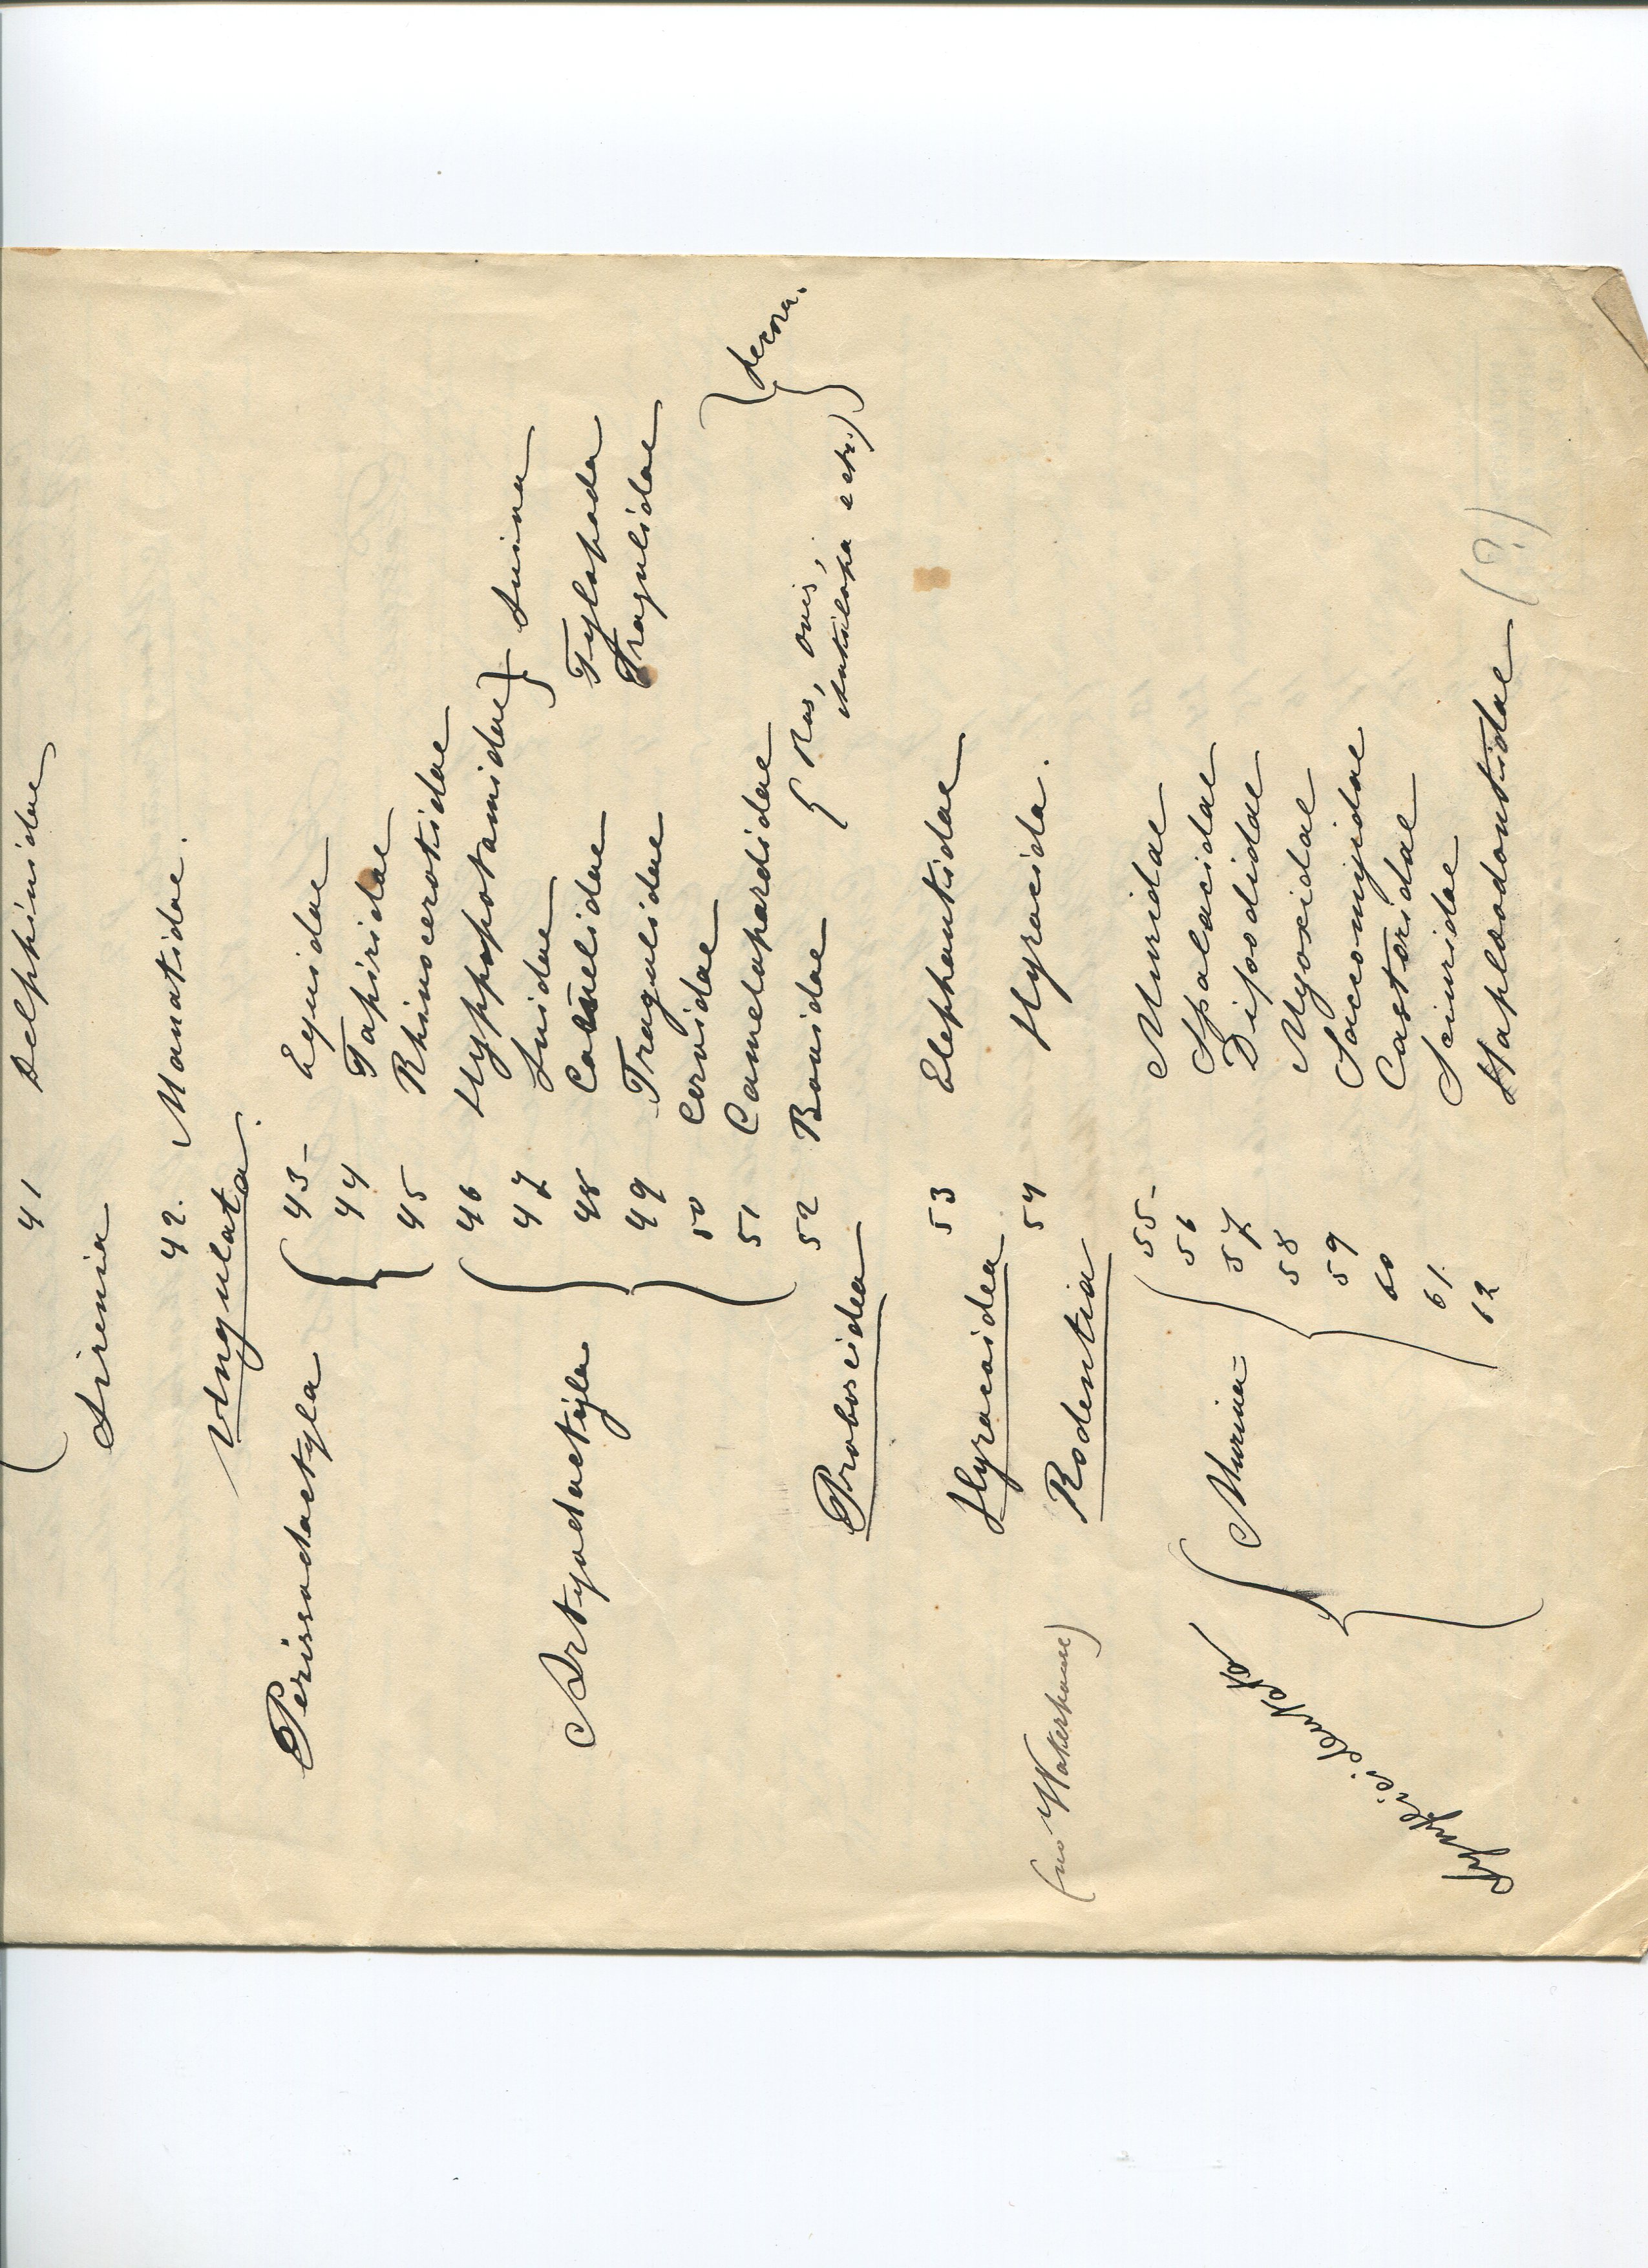 41 Delphinidae
Sirenia
42. Manatidae.
Ungulata.
43- Equidae
44 Tapiridae
Perissodactyla
45 Rhinocerotidae
46 Hyppopotamidae } Suina
47 Suidae
48 Camelidae Tylopoda
Artyodactyla
49 Tragulidae Tragulidae
50 Cervidae
51 Camelopardidae
52 Bovidae { Bos, ovis,
antilopa etc.) } Pecora.
Proboscidea
53 Elephantidae
Hyracoidea
54 Hyracida.
Rodentia
(no Waterhouse)
55- Muridae
56 Spalacidae
57. Dipodidae
Murina
58 Myoxidae
59 Saccomyidae
60 Castoridae
61. Sciuridae
62 Haplodontidae (?)